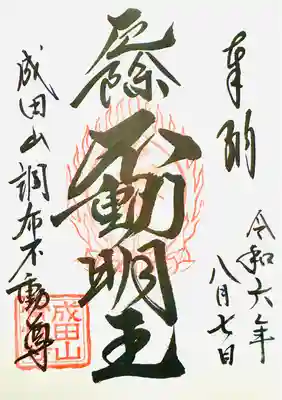 奉拝
令和六年
八月七日
厄除
不動明王
成田山調布不動尊
成田山